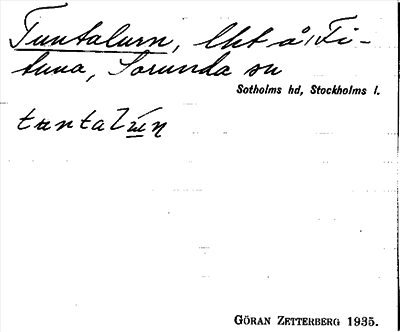 Tuntalum, lht å Fi-
tuna, Sorunda sn
Sotholms hd, Stockholms l.
tuntalum
GÖRAN ZETTERBERG 1935.